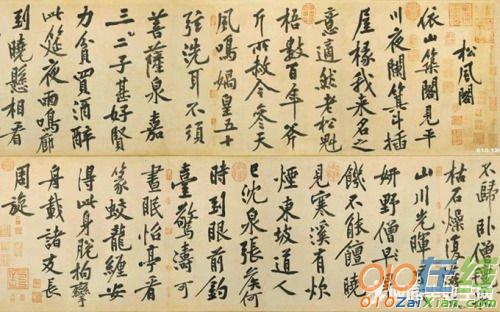 松風閣
依山築閣見平
川夜闌箕斗插
屋椽我來名之
意適然老松魁
梧數百年斧
斤所赦今參天
風鳴媧皇五十
弦洗耳不須
菩薩泉嘉
三二子甚好賢
力貧買酒醉
此筵夜雨鳴廊
到曉懸相看
不歸卧僧氈
枯石燥復潺
山川光暉
妍野僧旱
饑不能饘曉
見寒溪有炊
煙東坡道人
已沈泉張侯何
時到眼前釣
臺驚濤可
晝眠怡亭看
篆蛟龍纏安
得此身脫拘攣
舟載諸友長
周旋
010在线
010ZaiXian.com